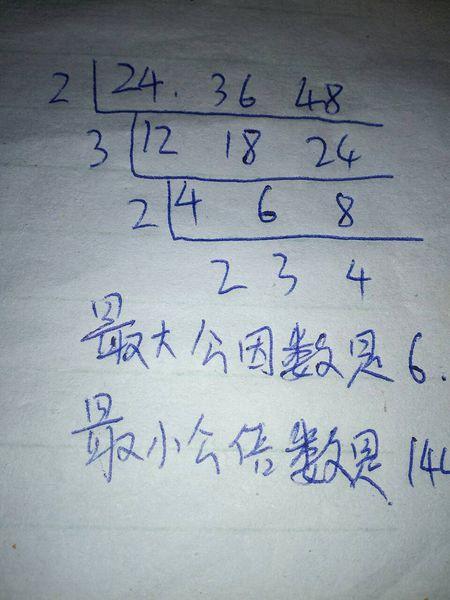 2 24. 36 48
3 12 18 24
2 4 6 8
2 3 4
最大公因数是6.
最小公倍数是14